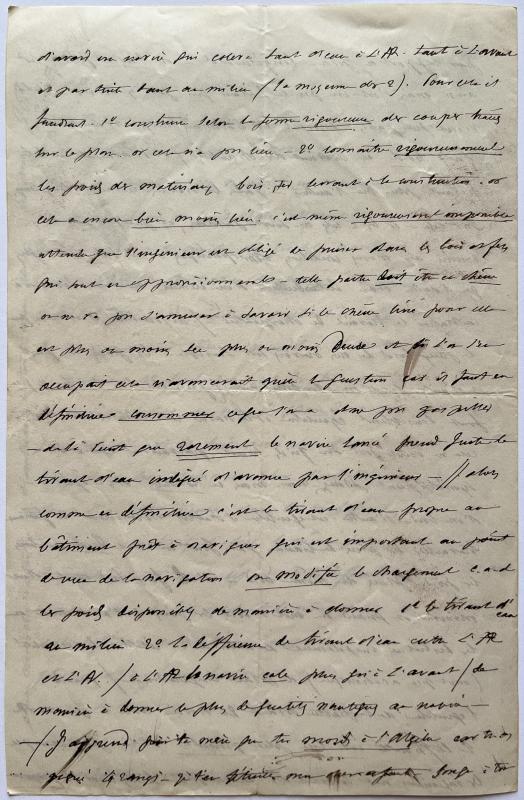 d'avord un navire qui calera tant d'eau à l'AR. tant à l'avant
et par suite tant au milieu (la moyenne des 2). Pour cela il
faudrait 1º construire selon la forme rigoureuse des coupes tracées
sur le plan. or cela n'a pas lieu - 2º connaître rigoureusement
les poids des matériaux bois, fer servant à la construction. or
cela a encore bien moins lieu. c'est même rigoureusement impossible
attendu que l'ingénieur est obligé de puiser dans les bois et fers
qui sont en approvisionnements - telle partie doit être en chêne
on ne va pas s'amuser à savoir si le chêne livré pour elle
est plus ou moins sec plus ou moins dense et si l'on s'en
occupait cela n'avancerait guère la question car il faut en
définitive consommer ce que l'on a et ne pas gaspiller
- de là vient que rarement le navire lancé prend juste le
tirant d'eau indiqué d'avance par l'ingénieur - // alors
comme en définitive c'est le tirant d'eau propre au
bâtiment prêt à naviguer qui est important au point
de vue de la navigation on modifie le chargement c.a.d
les poids disponibles de manière à donner 1º le tirant d'eau
au milieu 2º la différence de tirant d'eau entre l'AR
et l'AV. / à l'AR le navire cale plus qu'à l'avant / de
manière à donner le plus de qualités nautiques au navire -
- /. J'apprends par ta mère que tu à l'Algèbre
4 rangs - Songe à ton